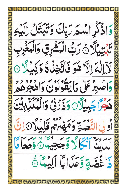 وَاذْكُرِ اسْمَ رَبِّكَ وَتَبَتَّلْ إِلَيْهِ
تَبْتِيلًا رَبُّ الْمَشْرِقِ وَالْمَغْرِبِ
لَا إِلَٰهَ إِلَّا هُوَ فَاتَّخِذْهُ وَكِيلًا
وَاصْبِرْ عَلَىٰ مَا يَقُولُونَ وَاهْجُرْهُمْ
هَجْرًا جَمِيلًا وَذَرْنِي وَالْمُكَذِّبِينَ
أُولِي النَّعْمَةِ وَمَهِّلْهُمْ قَلِيلًا إِنَّ
لَدَيْنَا أَنْكَالًا وَجَحِيمًا وَطَعَامًا
ذَا غُصَّةٍ وَعَذَابًا أَلِيمًا